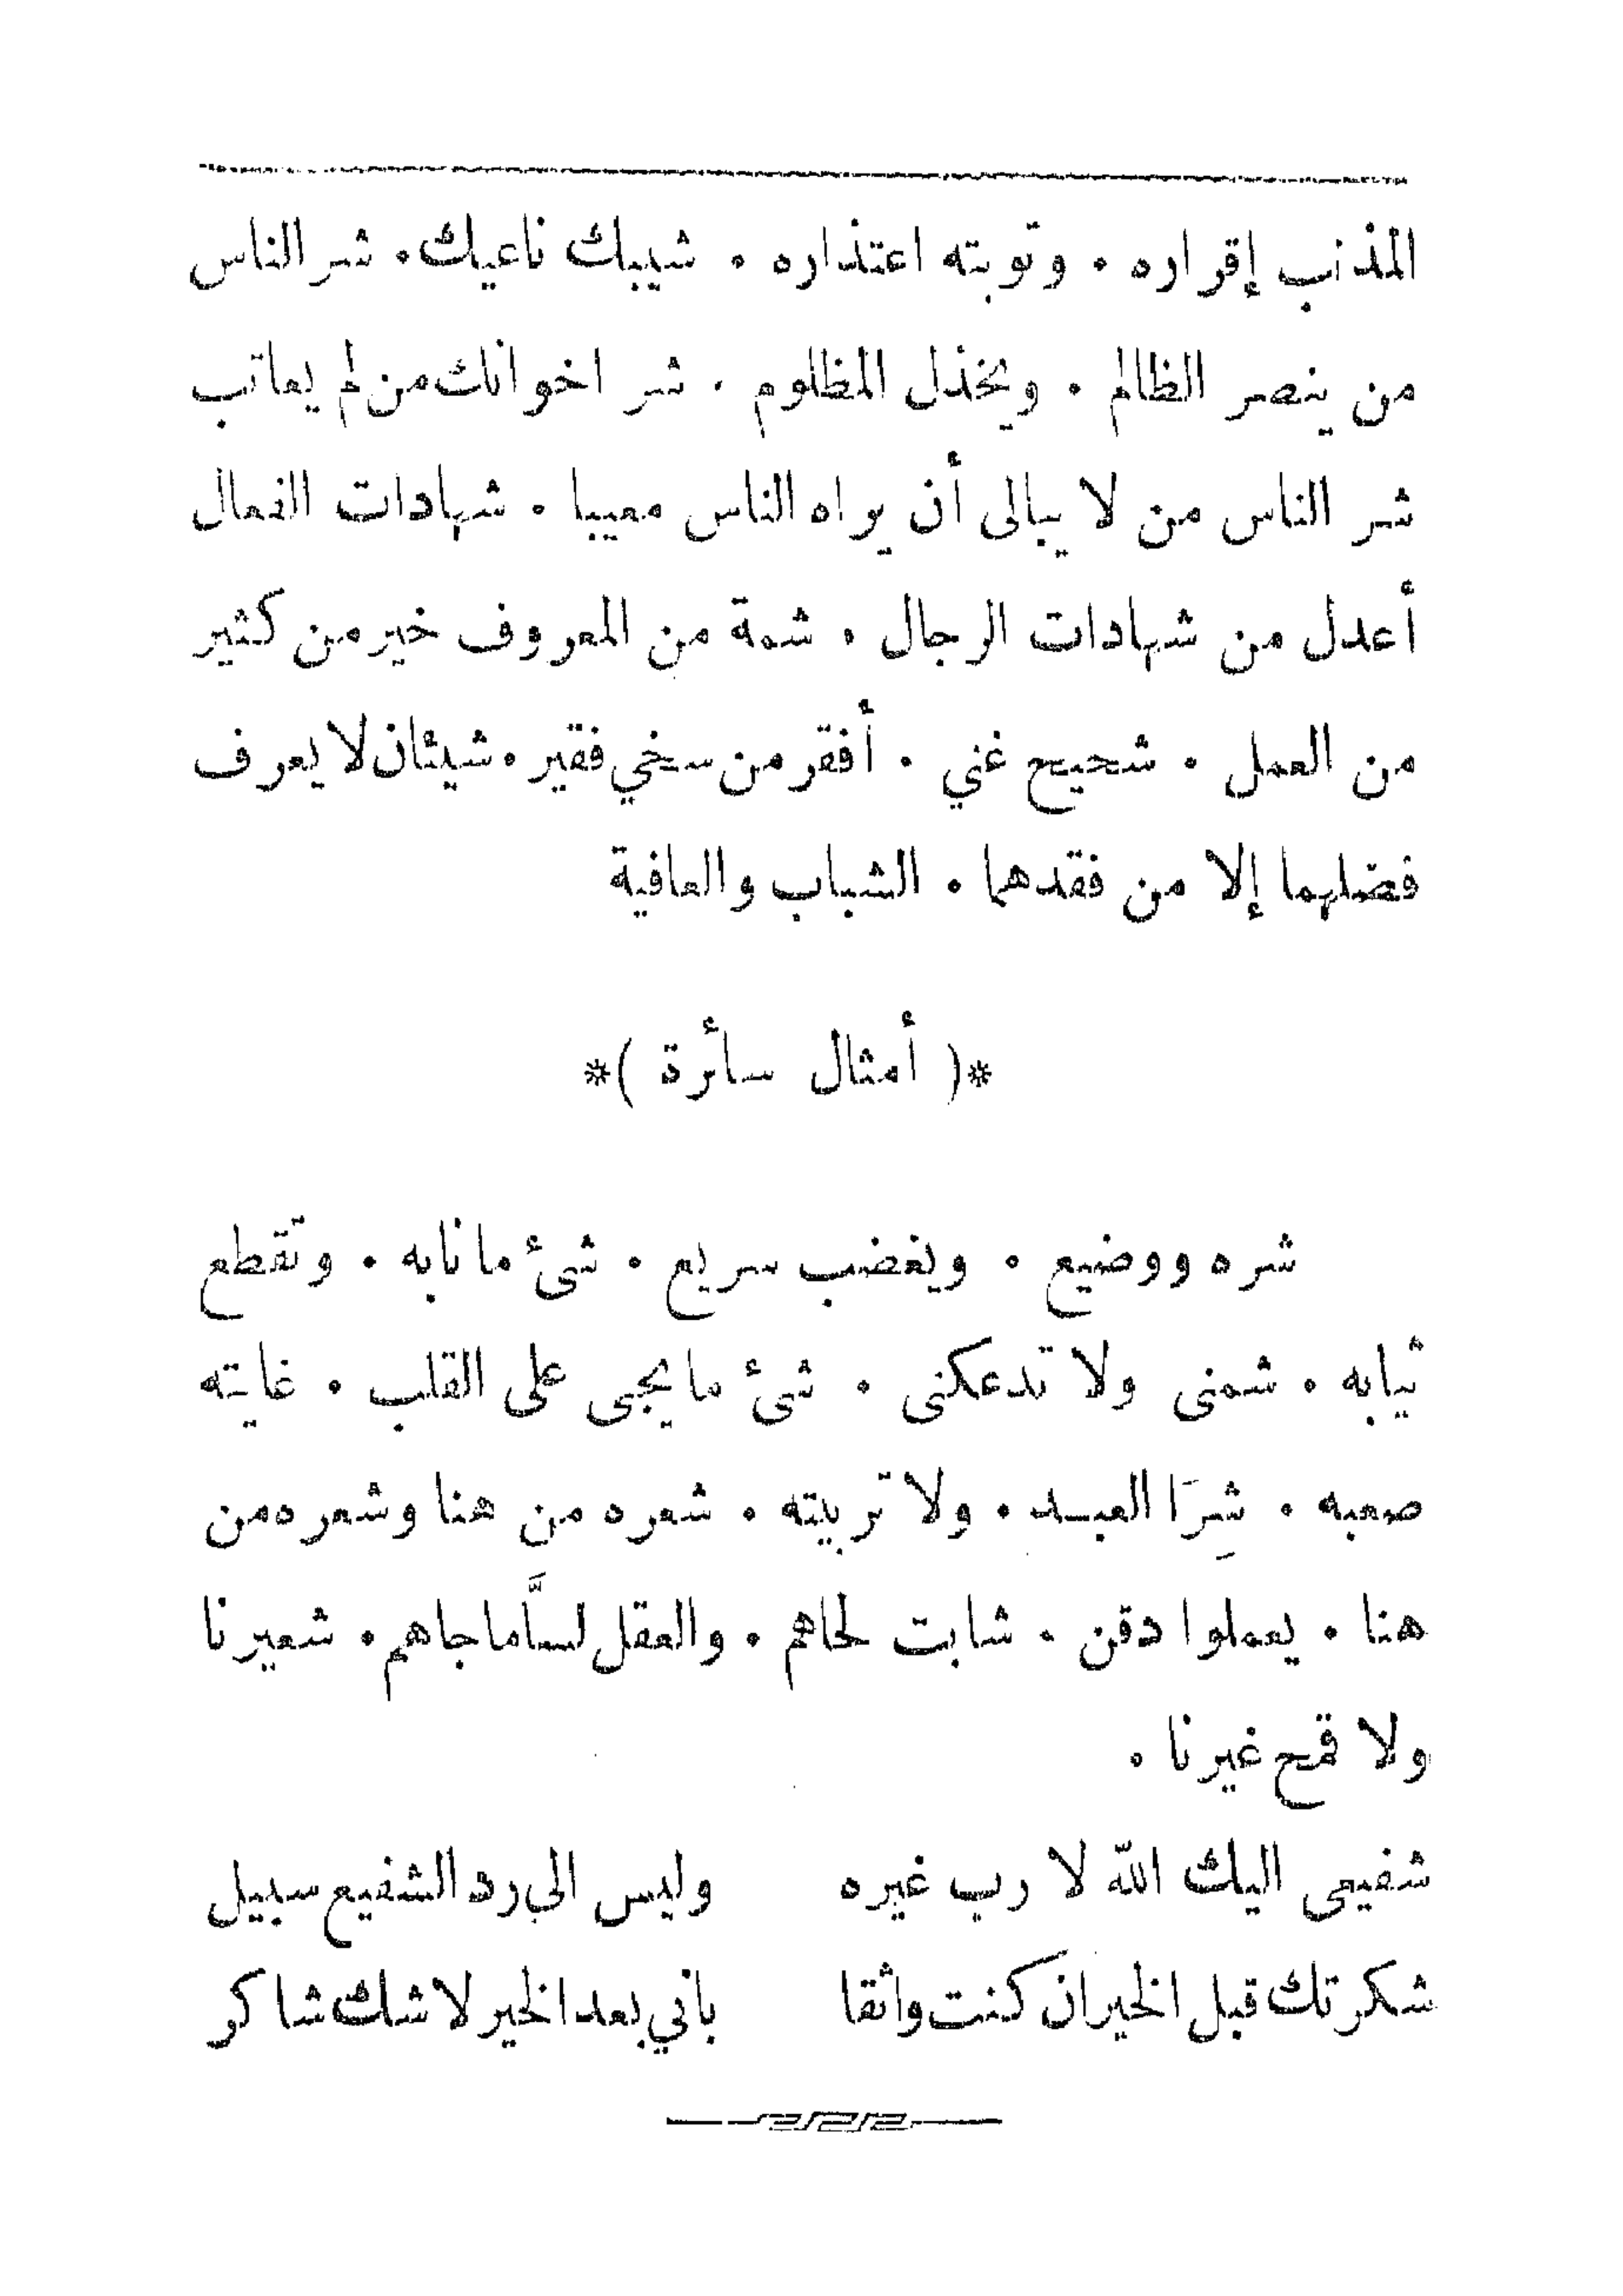 المذنب إقراره ٠ وتوبته اعتذاره ٠ شيبك ناعيك ٠ شر الناس
من ينصر الظالم ٠ ويخذل المظلوم ٠ شر اخوانك من لم يعاتب
شر الناس من لا يبالى أن يراه الناس معيبا ٠ شهادات الفعال
أعدل من شهادات الرجال ٠ شمة من المعروف خير من كثير
من العمل ٠ شحيح غني ٠ أفقر من سخي فقير ٠ شيئان لا يعرف
فضلهما إلا من فقدهما ٠ الشباب والعافية
*( أمثال سأرة )*
شره ووضيع ٠ ويغضب سريع ٠ شئ ما نابه ٠ وتقطع
ثيابه ٠ شمنى ولا تدعكنى ٠ شئ ما يجى على القلب ٠ غايته
صعبه ٠ شِرَا العبد ٠ ولا تربيته ٠ شعره من هنا وشعره من
هنا ٠ يعملوا دقن ٠ شابت لحاهم ٠ والعقل لسَّا ما جاهم ٠ شعيرنا
ولا قمح غيرنا ٠
شفيعى اليك الله لا رب غيره وليس الي رد الشفيع سبيل
شكرتك قبل الخير ان كنت واثقا باني بعد الخير لا شك شاكر